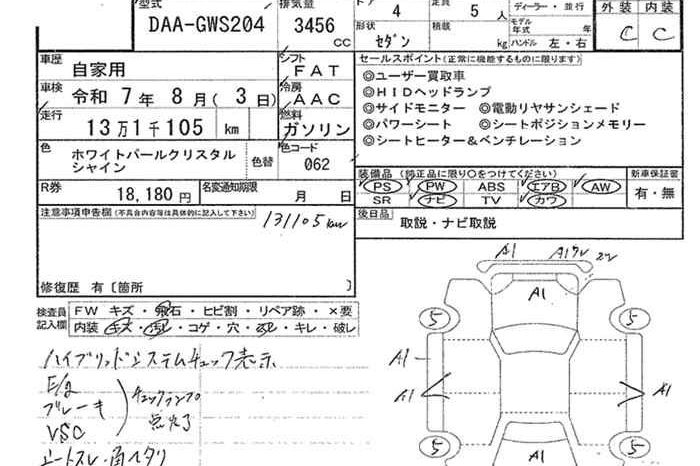 型式 排気量 ドア 定員 ディーラー・並行 外装 内装
DAA-GWS204 3456 cc 4 5 人
形状 積載 モデル年式 年
セダン kg ハンドル 左・右 C C
車歴 自家用 シフト FAT セールスポイント(正常に機能するものに限ります)
車検 令和 7年 8月( 3日) 冷房 AAC
◎ユーザー買取車
◎HIDヘッドランプ
◎サイドモニター ◎電動リヤサンシェード
◎パワーシート ◎シートポジションメモリー
◎シートヒーター&ベンチレーション
走行 13万1千105 km 燃料 ガソリン
色 ホワイトパールクリスタルシャイン 色替 色コード 062
装備品(純正品に限り○をつけてください) 新車保証書
PS PW ABS エアB AW 有・無
SR ナビ TV カワ
R券 18,180円 名変通知期限 月 日
後日品 取説・ナビ取説
注意事項申告欄(不具合内容等は具体的に記入して下さい) 131105km
修復歴 有〔箇所 〕
検査員記入欄 FW キズ・飛石・ヒビ割・リペア跡・×要
内装 キズ・汚レ・コゲ・穴・ネレ・キレ・破レ
ハイブリッドシステムチェック表示
E/g
ブレーキ チェックランプ
VSC 点灯
A1 A1 A1
5 5
A1 A1 A1
5 5
A1